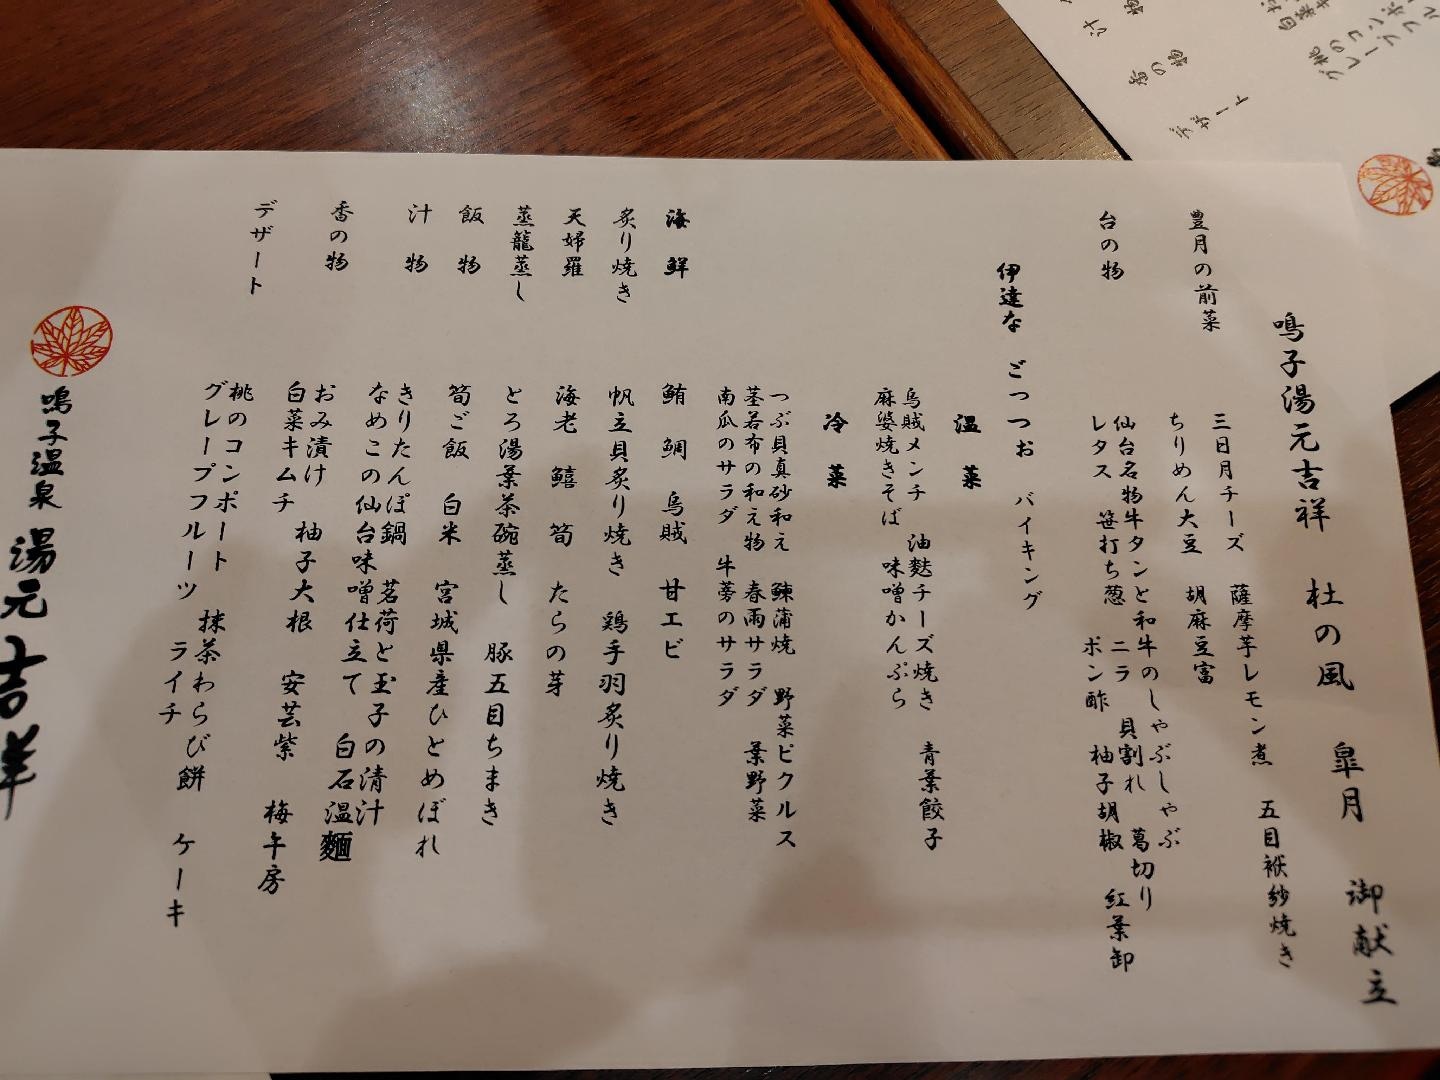 鳴子湯元吉祥 杜の風 皐月 御献立
豊月の前菜
三日月チーズ 薩摩芋レモン煮 五目袱紗焼き
ちりめん大豆 胡麻豆富
台の物
仙台名物牛タンと和牛のしゃぶしゃぶ 葛切り
レタス 笹打ち葱 ニラ 貝割れ
ポン酢 柚子胡椒 紅葉卸
伊達な ごっつお バイキング
温菜
烏賊メンチ 油麩チーズ焼き 青葉餃子
麻婆焼きそば 味噌かんぷら
冷菜
つぶ貝真砂和え 鰊蒲焼 野菜ピクルス
茎若布の和え物 春雨サラダ 葉野菜
南瓜のサラダ 牛蒡のサラダ
海鮮
鮪 鯛 烏賊 甘エビ
炙り焼き
帆立貝炙り焼き 鶏手羽炙り焼き
天婦羅
海老 鱚 筍 たらの芽
蒸籠蒸し
とろ湯葉茶碗蒸し 豚五目ちまき
飯物
筍ご飯 白米 宮城県産ひとめぼれ
汁物
きりたんぽ鍋 茗荷と玉子の清汁
なめこの仙台味噌仕立て 白石温麺
香の物
おみ漬け 柚子大根 安芸紫 梅牛房
白菜キムチ
デザート
桃のコンポート 抹茶わらび餅 ケーキ
グレープフルーツ ライチ
鳴子温泉 湯元吉祥